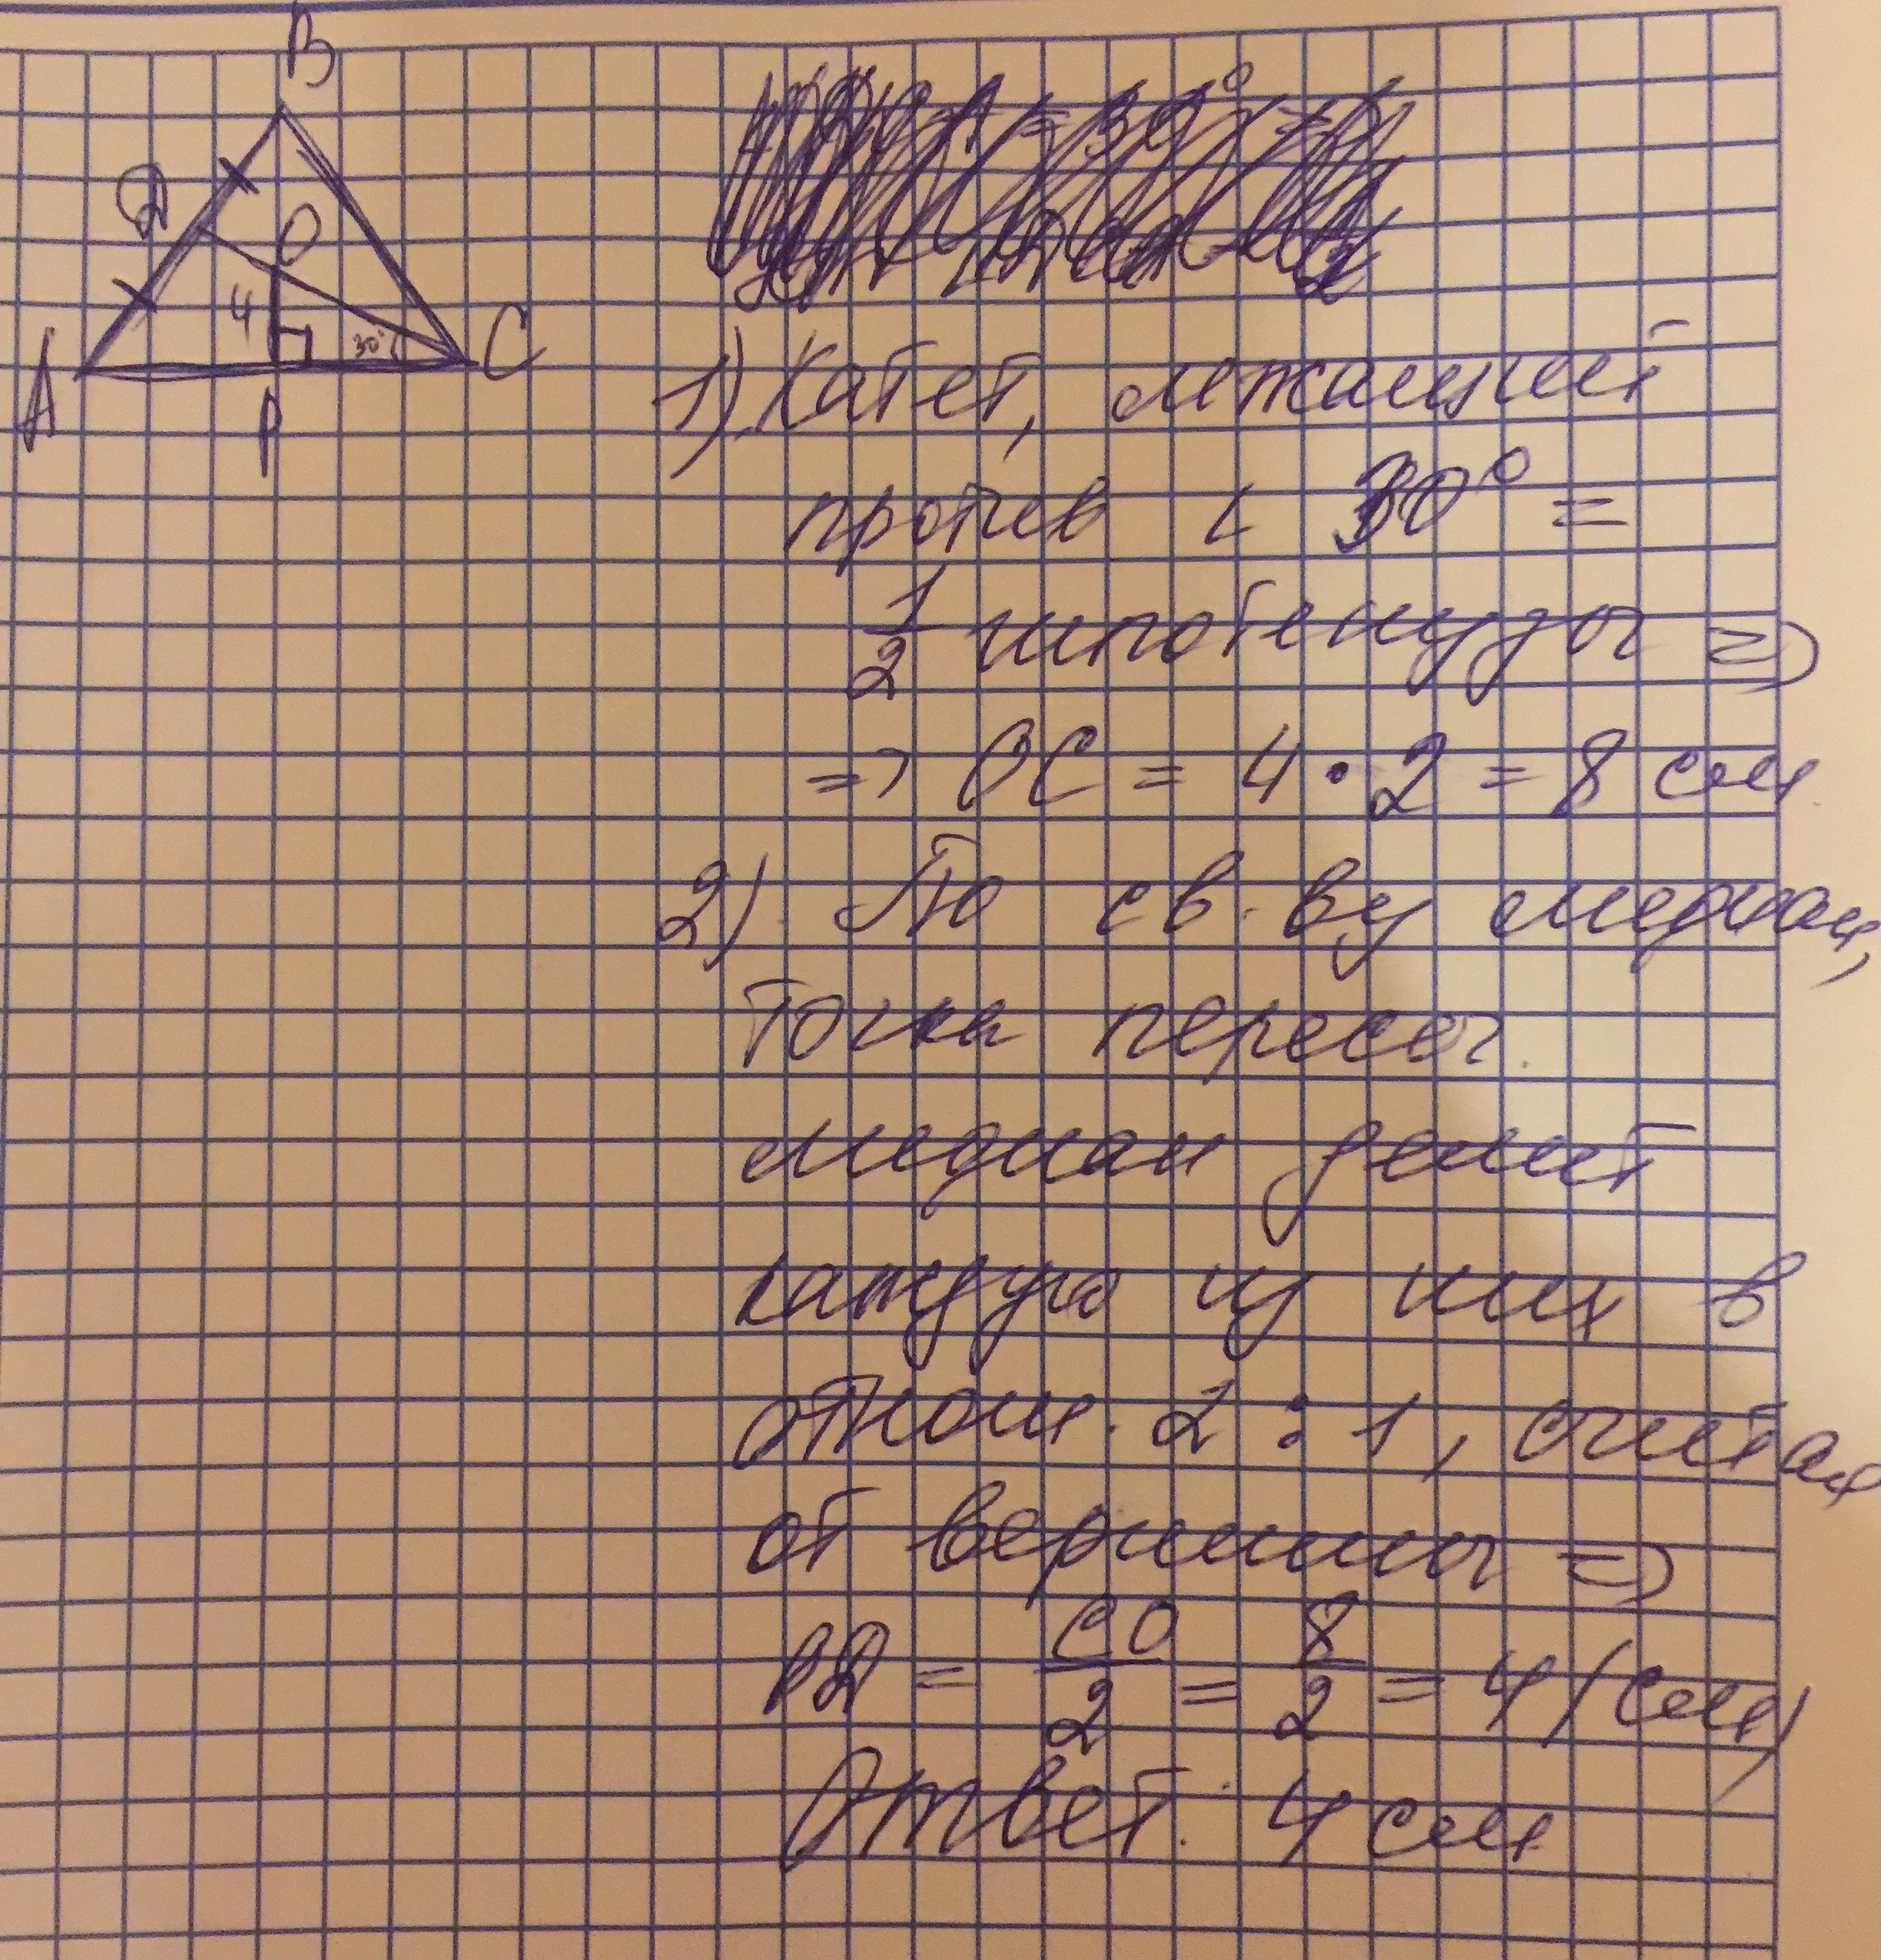 B
D
O
4
30°
A
C
P
1). Катет, лежащий
против < 30° =
1/2 гипотенузы =>
=> OC = 4 • 2 = 8 см
2). По св-ву медиан,
точка пересеч.
медиан делит
каждую из них в
отнош. 2 : 1, считая
от вершины =>
OD = CO/2 = 8/2 = 4 (см)
Ответ: 4 см